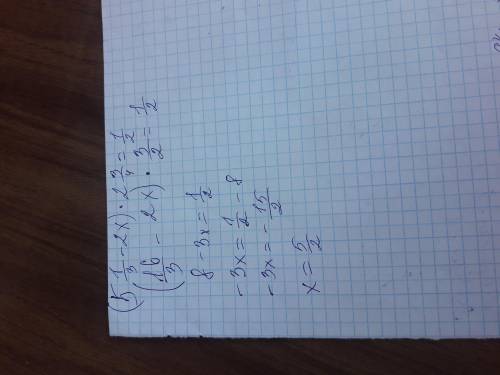 (5 1/3 - 2x) · 2 3/4 = 1/2
(16/3 - 2x) · 3/2 = 1/2
8 - 3x = 1/2
-3x = 1/2 - 8
-3x = - 15/2
x = 5/2